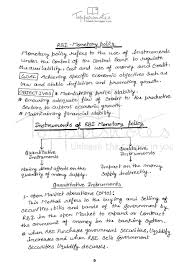 Toppersnotes
Unleash the topper in you
RBI - Monetary Policy
Monetary policy refers to the use of instruments
under the control of the central bank to regulate
the availability, cost and use of money and credit.
GOAL: Achieving specific economic objectives such as
low and stable inflation and promoting growth.
OBJECTIVES: ★ Maintaining price stability.
★ Ensuring adequate flow of credit to the productive
sectors to support economic growth.
★ Maintaining financial stability.
Instruments of RBI Monetary Policy
Quantitative Qualitative
Instruments Instruments
Having direct effects on Impact on the money
the money supply supply indirectly.
Quantitative Instruments
1- Open Market Operations (OMO)
This method refers to the buying and selling of
securities, bills and bonds of the government by
RBI in the open market to expand or contract the
amount of money in the banking system.
★ When RBI purchases government securities, liquidity
increases and when RBI sells government
securities liquidity decreases.